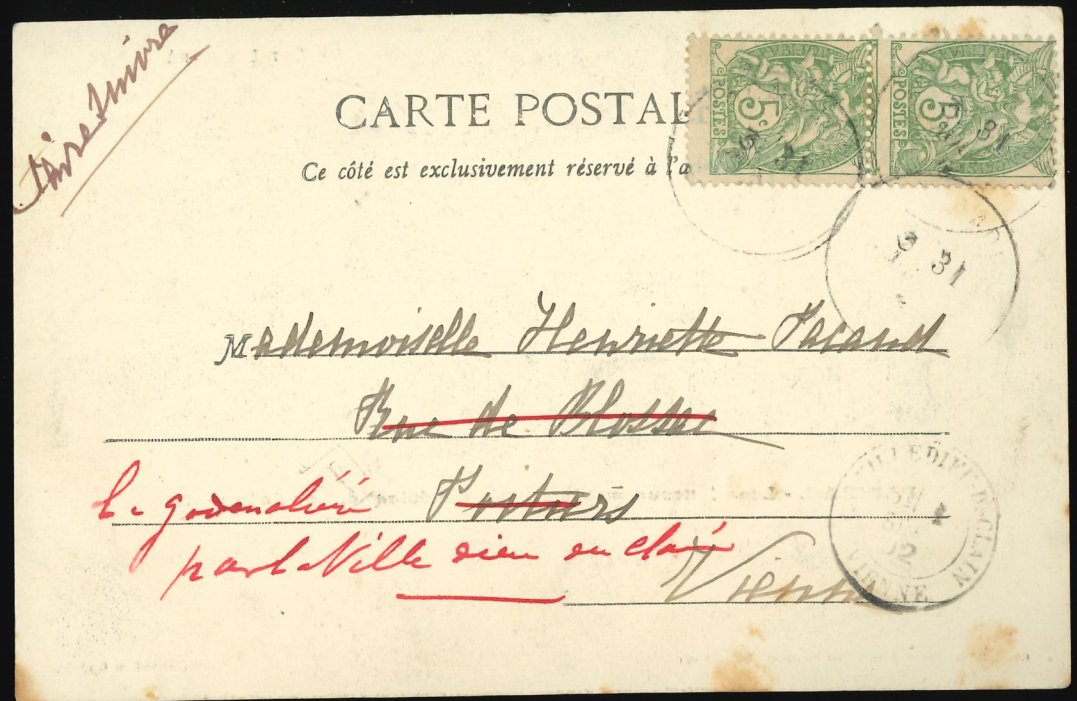 Faire suivre
CARTE POSTAL
Ce côté est exclusivement réservé à l'a
POSTES 5
POSTES 5
31
31
31
Mademoiselle Henriette Pacaud
Rue de Blossac
Poitiers
la
par Ville dieu du clain
Vienne
VILLEDIEU-DU-CLAIN
VIENNE